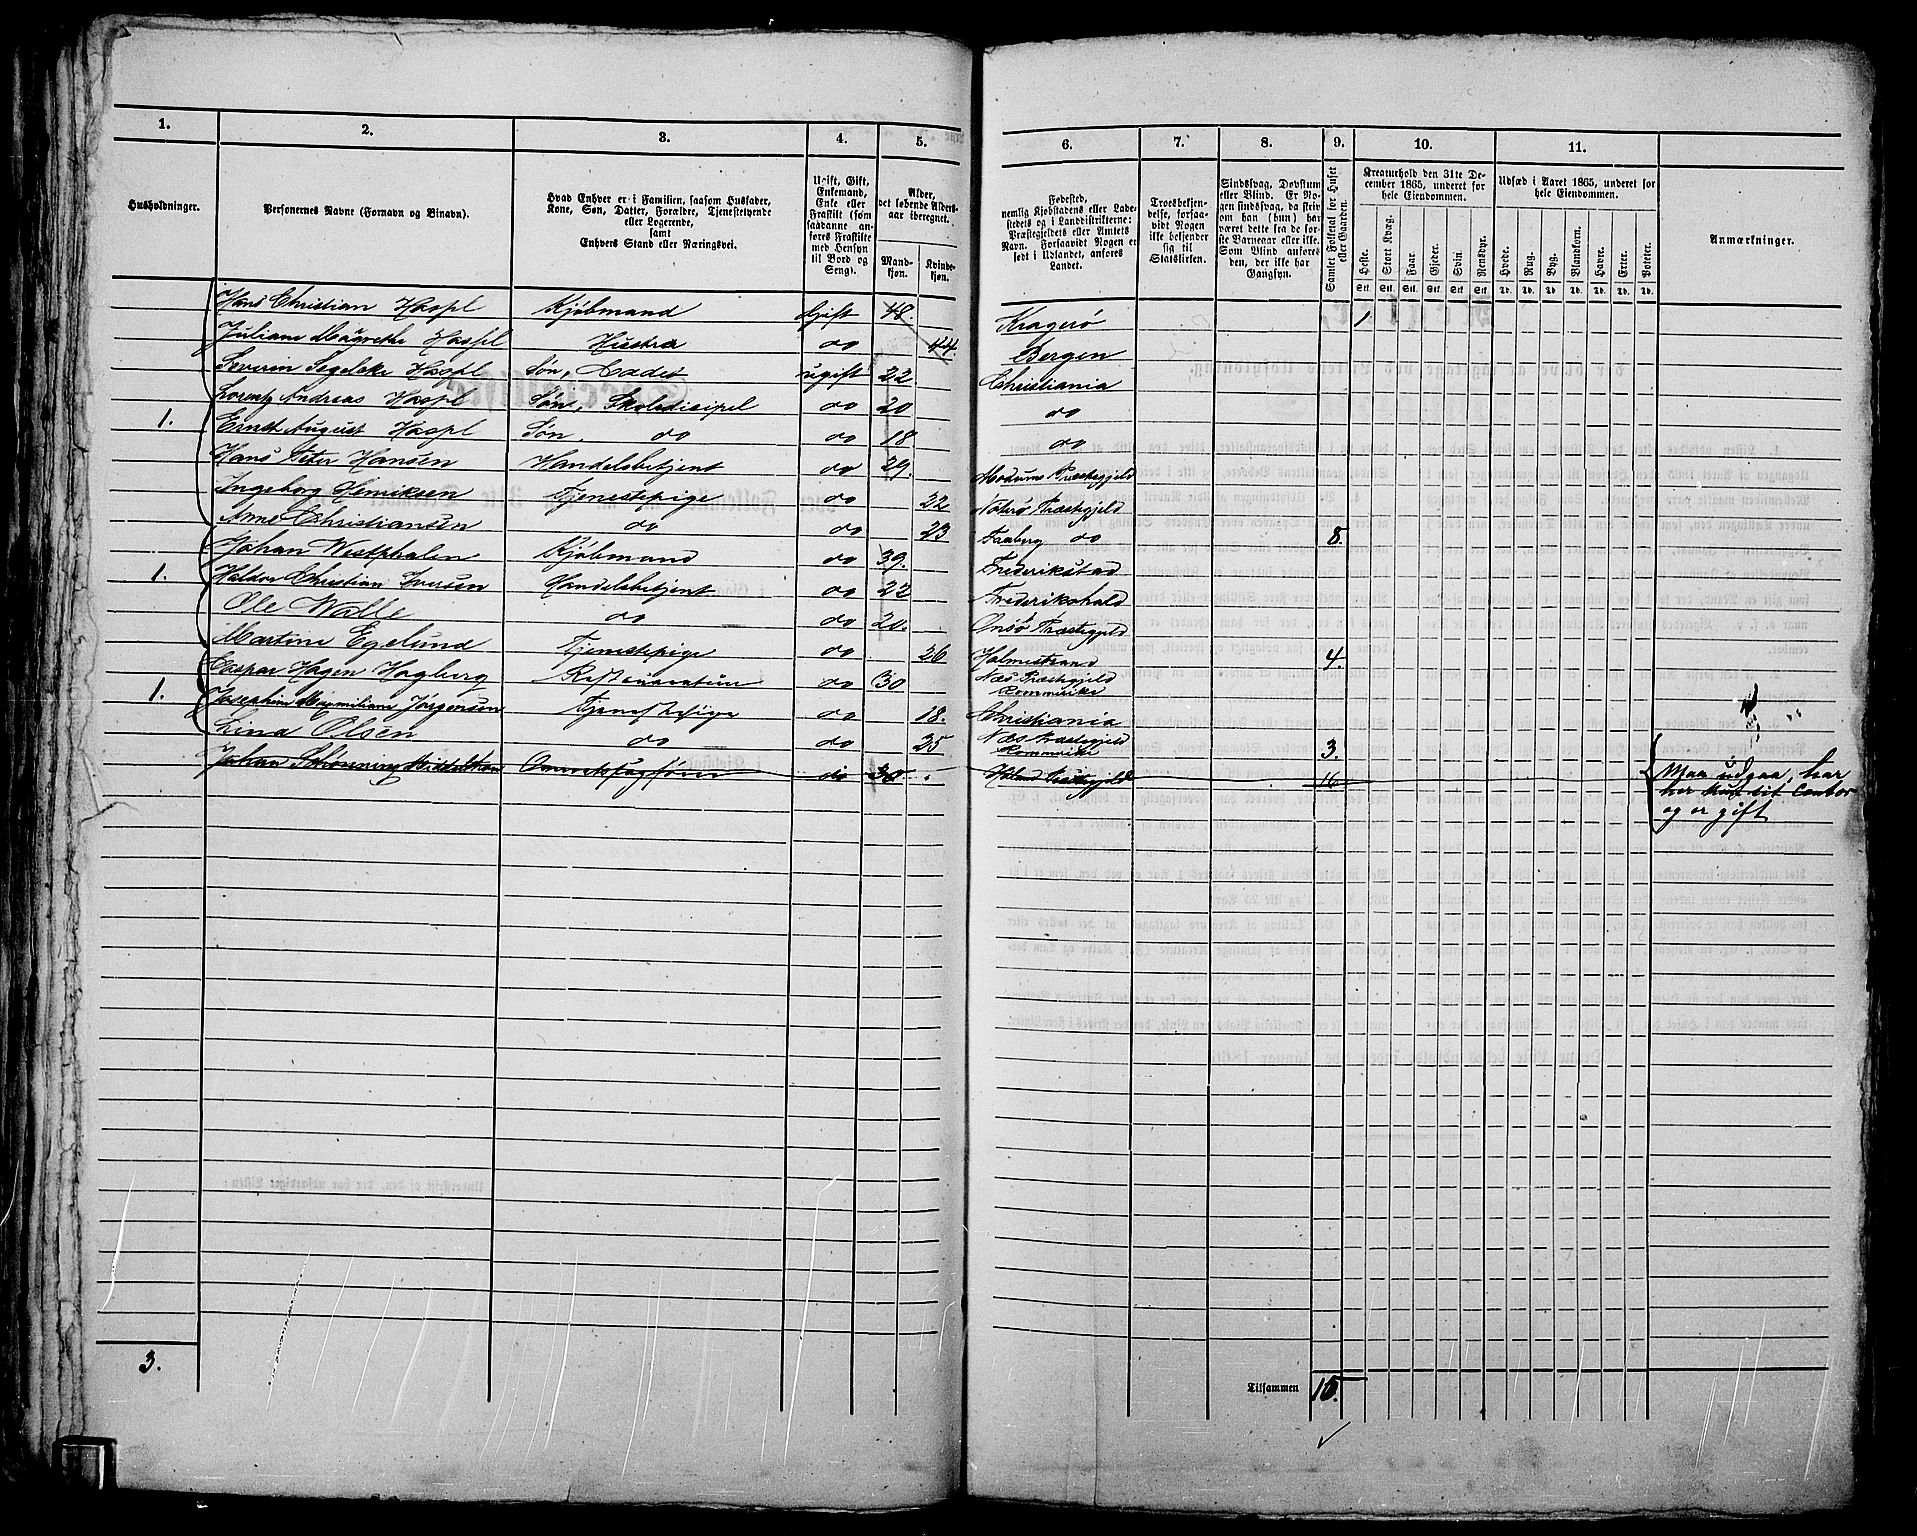 1. 2. 3. 4. 5. 6. 7. 8. 9. 10. 11.
Husholdninger.
Personernes Navne (Fornavn og Binavn).
Hvad Enhver er i Familien, saasom Husfader,
Kone, Søn, Datter, Forældre, Tjenestetyende
eller Logerende,
samt
Enhvers Stand eller Næringsvei.
Ugift, Gift,
Enkemand,
Enke eller
Fraskilt (som
saadanne an-
føres Fraskilte
med Hensyn
til Bord og
Seng).
Alder,
det løbende Alders-
aar iberegnet.
Mand-
kjøn.
Kvinde-
kjøn.
Fødested,
nemlig Kjøbstadens eller Lade-
stedets og i Landdistrikterne:
Præstegjeldets eller Amtets
Navn. Forsaavidt Nogen er
født i Udlandet, anføres
Landet.
Troesbekjen-
delse, forsaa-
vidt Nogen
ikke bekjender
sig til
Statskirken.
Sindssvag, Døvstum
eller Blind. Er No-
gen sindssvag, da skrives
om han (hun) har
været dette fra de før-
ste Barneaar eller ikke.
Som Blind anføres
den, der ikke har
Gangsyn.
Samlet Folketal for Huset
eller Gaarden.
Kreaturhold den 31te De-
cember 1865, underet for
hele Eiendommen.
Heste. Stort Kvæg. Faar. Gjeder. Svin. Rensdyr.
Stk. Stk. Stk. Stk. Stk. Stk.
Udsæd i Aaret 1865, underet for
hele Eiendommen.
Hvede. Rug. Byg. Blandkorn. Havre. Erter. Poteter.
Td. Td. Td. Td. Td. Td. Td.
Anmærkninger.
Hans Christian Haspl Kjøbmand Gift 48. Kragerø 1
Juliane Magrethe Haspl Hustru do 44. Bergen
Severin Segelcke Haspl Søn, Cadet ugift 22 Christiania
Lorentz Andreas Haspl Søn, Skoledisipel do 20 do
1. Ernst August Haspl Søn. do do 18 do
Hans Peter Hansen Handelsbetjent do 29. Modums Præstegjeld
Ingeborg Henriksen Tjenestepige do 22 Nøterø Præstegjeld
Anne Christiansen do do 23 Faaberg do 8.
Johan Westphalen Kjøbmand do 39. Frederikstad
1. Haldor Christian Iversen Handelsbetjent do 22 Frederikshald
Ole Walle do do 20. Onsø Præstegjeld
Martine Egelund Tjenestepige do 26 Holmestrand 4.
Caspar Hagen Hagberg do 30 Næs Præstegjeld
Rommerike
1. Josephine Maximiliane Jørgensen Tjenestepige do 18. Christiania
Lina Olsen do do 25 Næs Præstegjeld
Rommerike 3.
Johan do 30. Præstegjeld 16
Maa udgaa, har
her kun sit Contor
og er gift
3. Tilsammen 15.